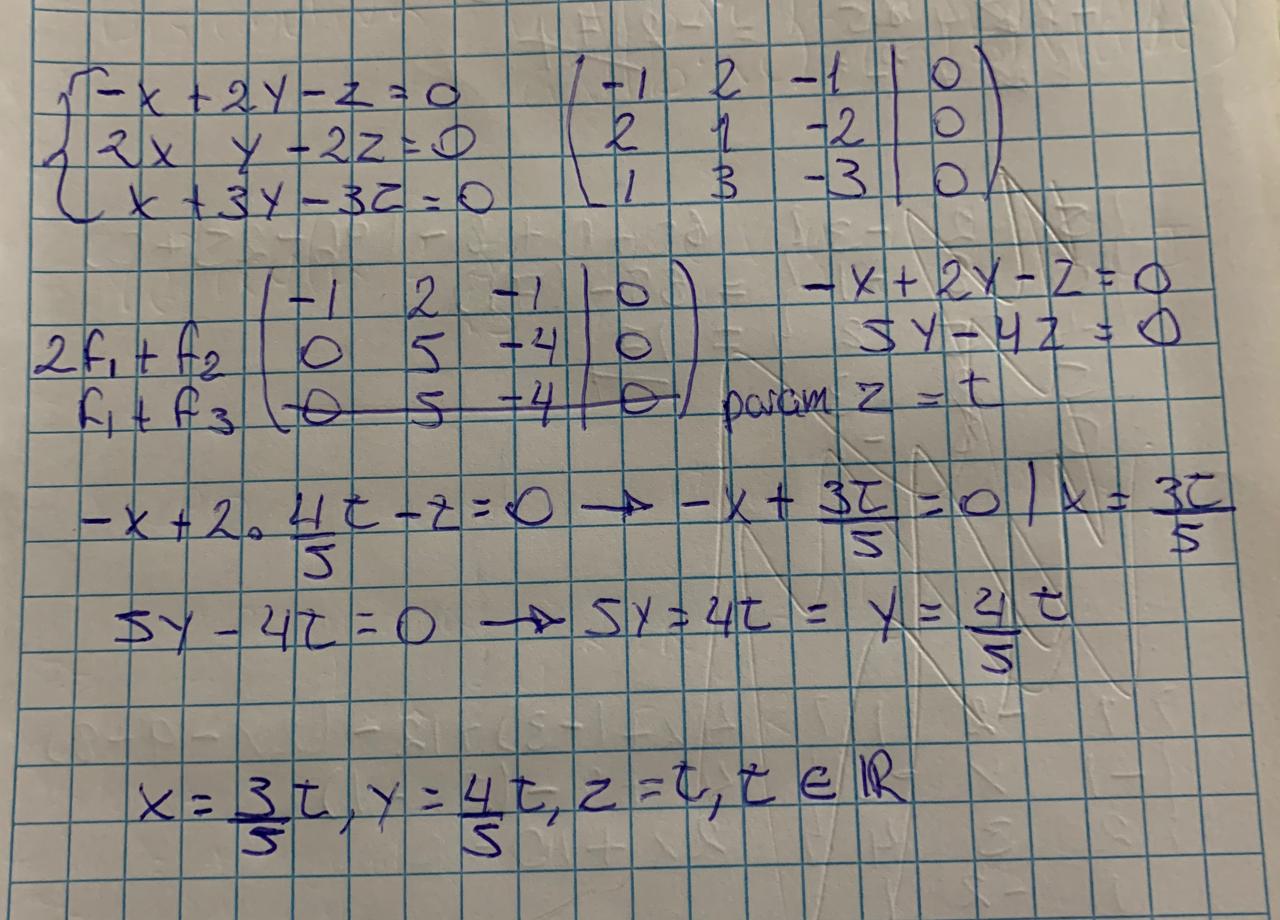 -x + 2y - z = 0
2x y - 2z = 0
x + 3y - 3z = 0
-1 2 -1 | 0
2 1 -2 | 0
1 3 -3 | 0
-1 2 -1 | 0
2f₁ + f₂ 0 5 -4 | 0
f₁ + f₃ 0 5 -4 | 0
-x + 2y - z = 0
5y - 4z = 0
param z = t
-x + 2 · 4/5 t - t = 0 → -x + 3t/5 = 0 | x = 3t/5
5y - 4t = 0 → 5y = 4t = y = 4/5 t
x = 3/5 t, y = 4/5 t, z = t, t ∈ ℝ